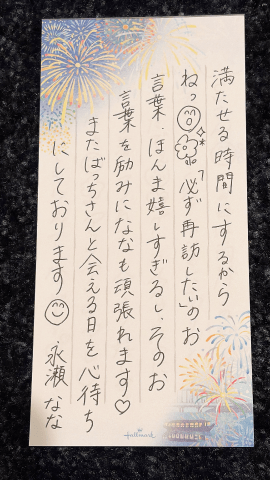 満たせる時間にするから
ねっ "必ず再訪したい"のお
言葉、ほんま嬉しすぎるし、そのお
言葉を励みにななも頑張れます♡
またばっちさんと会える日を心待ち
にしております 永瀬なな
Hallmark